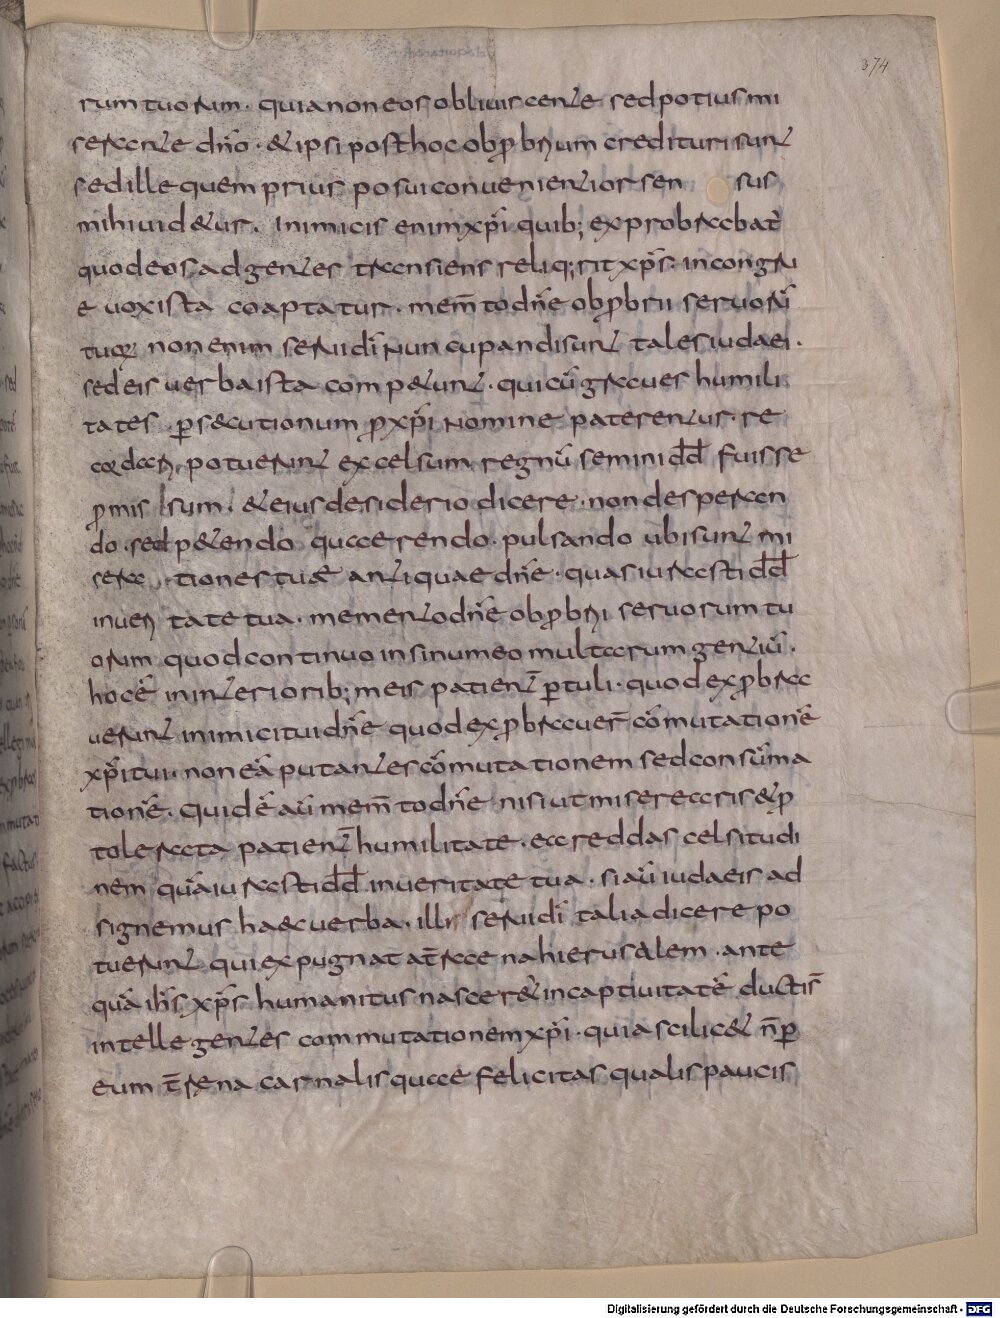 374
rum tuorum. quia non eos obliuiscente sed potius mi
serante dño. & ipsi post hoc obprobrium credituri sunt
sed ille quem prius posui conuenientior sen sus
mihi uid&ur. Inimicis enim xp̃i quib; exprobrabat̃
quod eos ad gentes transiens reliq;rit xp̃s. incongru
e uox ista coaptatur. mem̃to dñe obprobrii seruorũ
tuoꝝ non enim serui dĩ nuncupandi sunt tales iudaei.
sed eis uerba ista comp&unt. qui cũ graues humili
tates. ꝑs&cutionum ꝓ xp̃i nomine paterentur. re
cordari potuerunt excelsum regnũ semini dd̃ fuisse
ꝓmis sum. & eius desiderio dicere. non desperan
do. sed p&endo quaerendo. pulsando ubi sunt mi
sera tiones tuae antiquae dñe. quas iurasti dd̃
in ueri tate tua. memento dñe obprobrii seruorum tu
orum quod continuo in sinu meo multarum gentiũ.
hoc ẽ in interiorib; meis patient̃ ꝑtuli. quod exproba
uerunt inimici tui dñe quod exprobrauer̃ cõmutationẽ
xp̃i tui. non eã putantes cõmutationem sed consũma
tionẽ. quid ẽ aũ mem̃to dñe nisi ut miserearis & ꝓ
tolerata patient̃ humilitate. ea reddas celsitudi
nem quã iurasti dd̃ in ueritate tua. si aũ iudaeis ad
signemus haec uerba. illi serui dĩ talia dicere po
tuerunt qui expugnata t̃rena hierusalem. ante
quã ihs̃ xp̃s humanitus nascer& in captiuitatẽ ductis̃
intellegentes commutationem xp̃i. quia scilic& ñ ꝑ
eum t̃rena carnalisquae felicitas qualis paucis
Digitalisierung gefördert durch die Deutsche Forschungsgemeinschaft - DFG